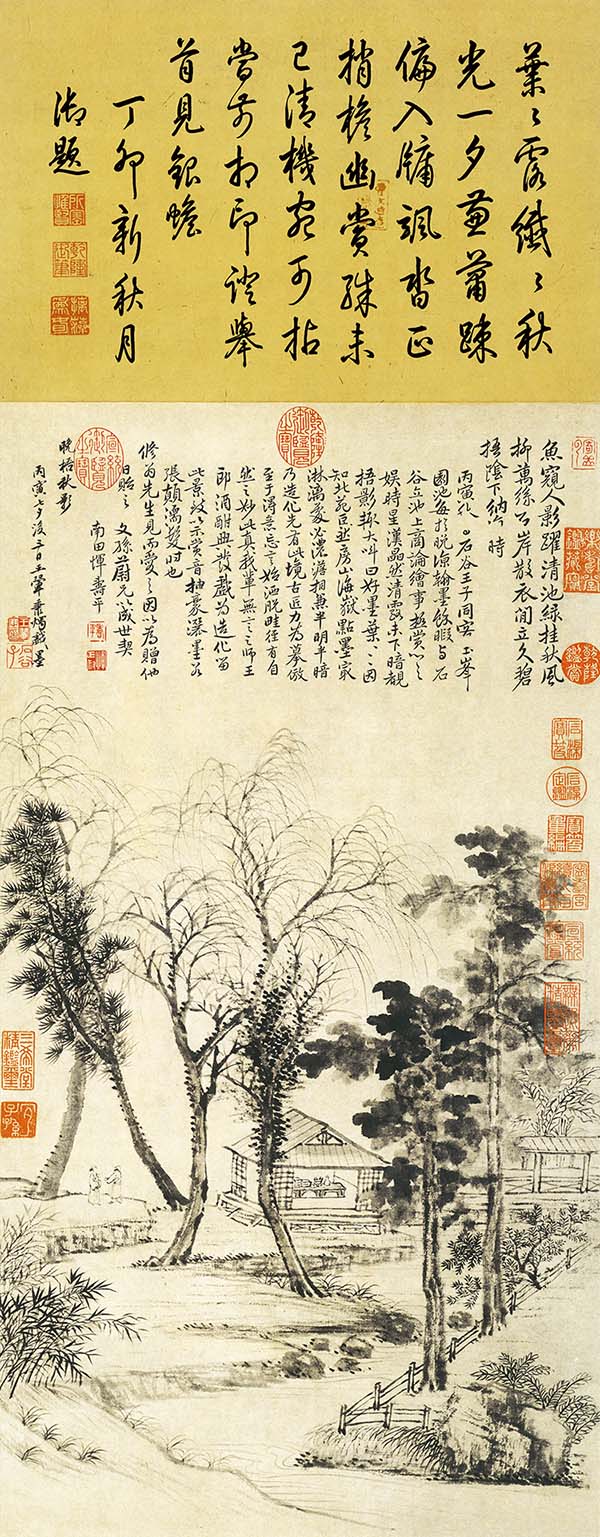 葉〻露纖〻秋
光一夕兼蕭踈
偏入牖颯沓正
捎檐幽賞殊未
已清機宛可拈
當前相印證舉
首見銀蟾
丁卯新秋月
御題
魚窺人影躍清池綠挂秋風
柳萬絲石岸散衣閒立久碧
梧陰下納涼時
丙寅秋石谷王子同客玉峯
園池每於晚涼翰墨餘暇與石
谷立池上商論繪事極賞心之
娱時星漢晶然清露未下暗覩
梧影輙大叫曰好墨葉〻〻因
知北苑巨然房山海嶽點墨最
淋漓處必濃潤相兼半明半暗
乃造化先有此境古匠力為摹倣
至于得意忘言始洒脫畦徑有自
然之妙此真我輩無言之師王
郎酒酣興發戲為造化留
此景致以示賞音抽豪洒墨若
張顛濡髮時也
修翁先生見而愛之因以為贈他
日貽之 文孫蔚兄以成世契
南田惲壽平
晚梧秋影
丙寅七夕後三日王翬秉燭戲墨